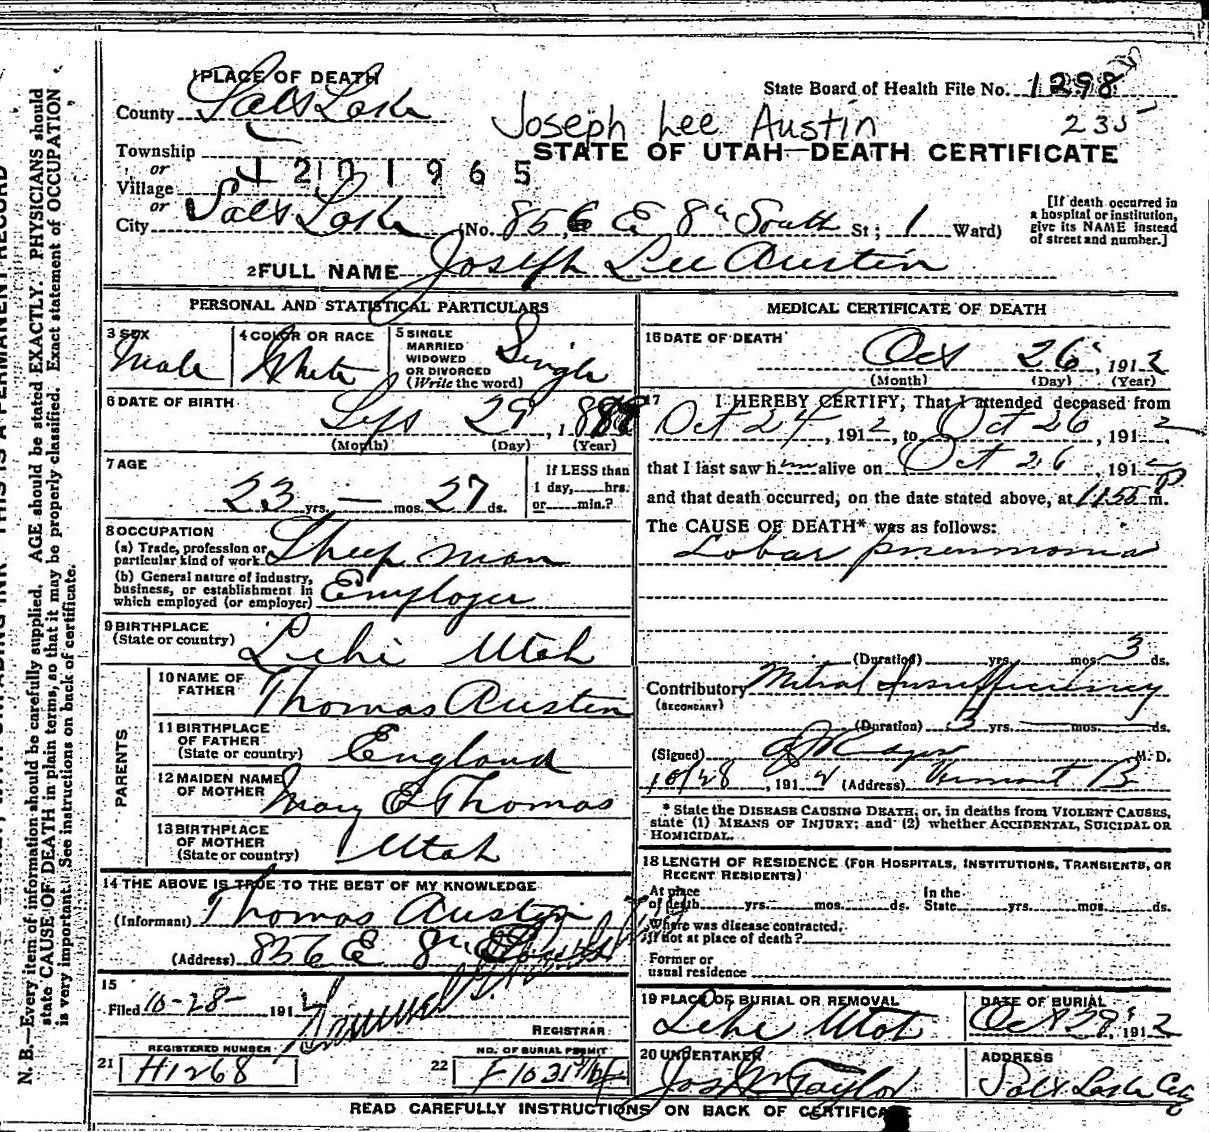 PLACE OF DEATH
County Salt Lake
State Board of Health File No. 1298
235
Joseph Lee Austin
STATE OF UTAH—DEATH CERTIFICATE
Township
or
Village
or
1201965
City Salt Lake (No. 856 E 8th South St; 1 Ward)
[If death occurred in
a hospital or institution,
give its NAME instead
of street and number.]
2 FULL NAME Joseph Lee Austin
PERSONAL AND STATISTICAL PARTICULARS
3 SEX
Male
4 COLOR OR RACE
White
5 SINGLE
MARRIED
WIDOWED
OR DIVORCED
(Write the word)
Single
6 DATE OF BIRTH
Sept 29, 188
(Month) (Day) (Year)
7 AGE
23 yrs. — mos. 27 ds.
If LESS than
1 day, hrs.
or min.?
8 OCCUPATION
(a) Trade, profession or
particular kind of work Sheep man
(b) General nature of industry,
business, or establishment in
which employed (or employer) Employer
9 BIRTHPLACE
(State or country) Lehi Utah
PARENTS
10 NAME OF
FATHER Thomas Austin
11 BIRTHPLACE
OF FATHER
(State or country) England
12 MAIDEN NAME
OF MOTHER Mary E Thomas
13 BIRTHPLACE
OF MOTHER
(State or country) Utah
14 THE ABOVE IS TRUE TO THE BEST OF MY KNOWLEDGE
(Informant) Thomas Austin
(Address) 856 E 8th
15
Filed 10-28- 191
REGISTRAR
REGISTERED NUMBER
21 H1268
NO. OF BURIAL PERMIT
22 F1031
MEDICAL CERTIFICATE OF DEATH
16 DATE OF DEATH
Oct 26, 1912
(Month) (Day) (Year)
17 I HEREBY CERTIFY, That I attended deceased from
Oct 24, 1912, to Oct 26, 1912
that I last saw him alive on Oct 26, 191
and that death occurred, on the date stated above, at 11:55 P m.
The CAUSE OF DEATH* was as follows:
Lobar pneumonia
(Duration) yrs. mos. 3 ds.
Contributory Mitral Insufficiency
(SECONDARY)
(Duration) 3 yrs. mos. ds.
(Signed) M. D.
10/28, 191 (Address) Vermont B
* State the DISEASE CAUSING DEATH, or, in deaths from VIOLENT CAUSES,
state (1) MEANS OF INJURY; and (2) whether ACCIDENTAL, SUICIDAL OR
HOMICIDAL.
18 LENGTH OF RESIDENCE (FOR HOSPITALS, INSTITUTIONS, TRANSIENTS, OR
RECENT RESIDENTS)
At place
of death yrs. mos. ds.
In the
State yrs. mos. ds.
Where was disease contracted,
if not at place of death?
Former or
usual residence
19 PLACE OF BURIAL OR REMOVAL
Lehi Utah
DATE OF BURIAL
Oct 29, 1912
20 UNDERTAKER
Jos Wm Taylor
ADDRESS
Salt Lake City
READ CAREFULLY INSTRUCTIONS ON BACK OF CERTIFICATE
THIS IS A PERMANENT RECORD
N. B.—Every item of information should be carefully supplied. AGE should be stated EXACTLY. PHYSICIANS should
state CAUSE OF DEATH in plain terms, so that it may be properly classified. Exact statement of OCCUPATION
is very important. See instructions on back of certificate.